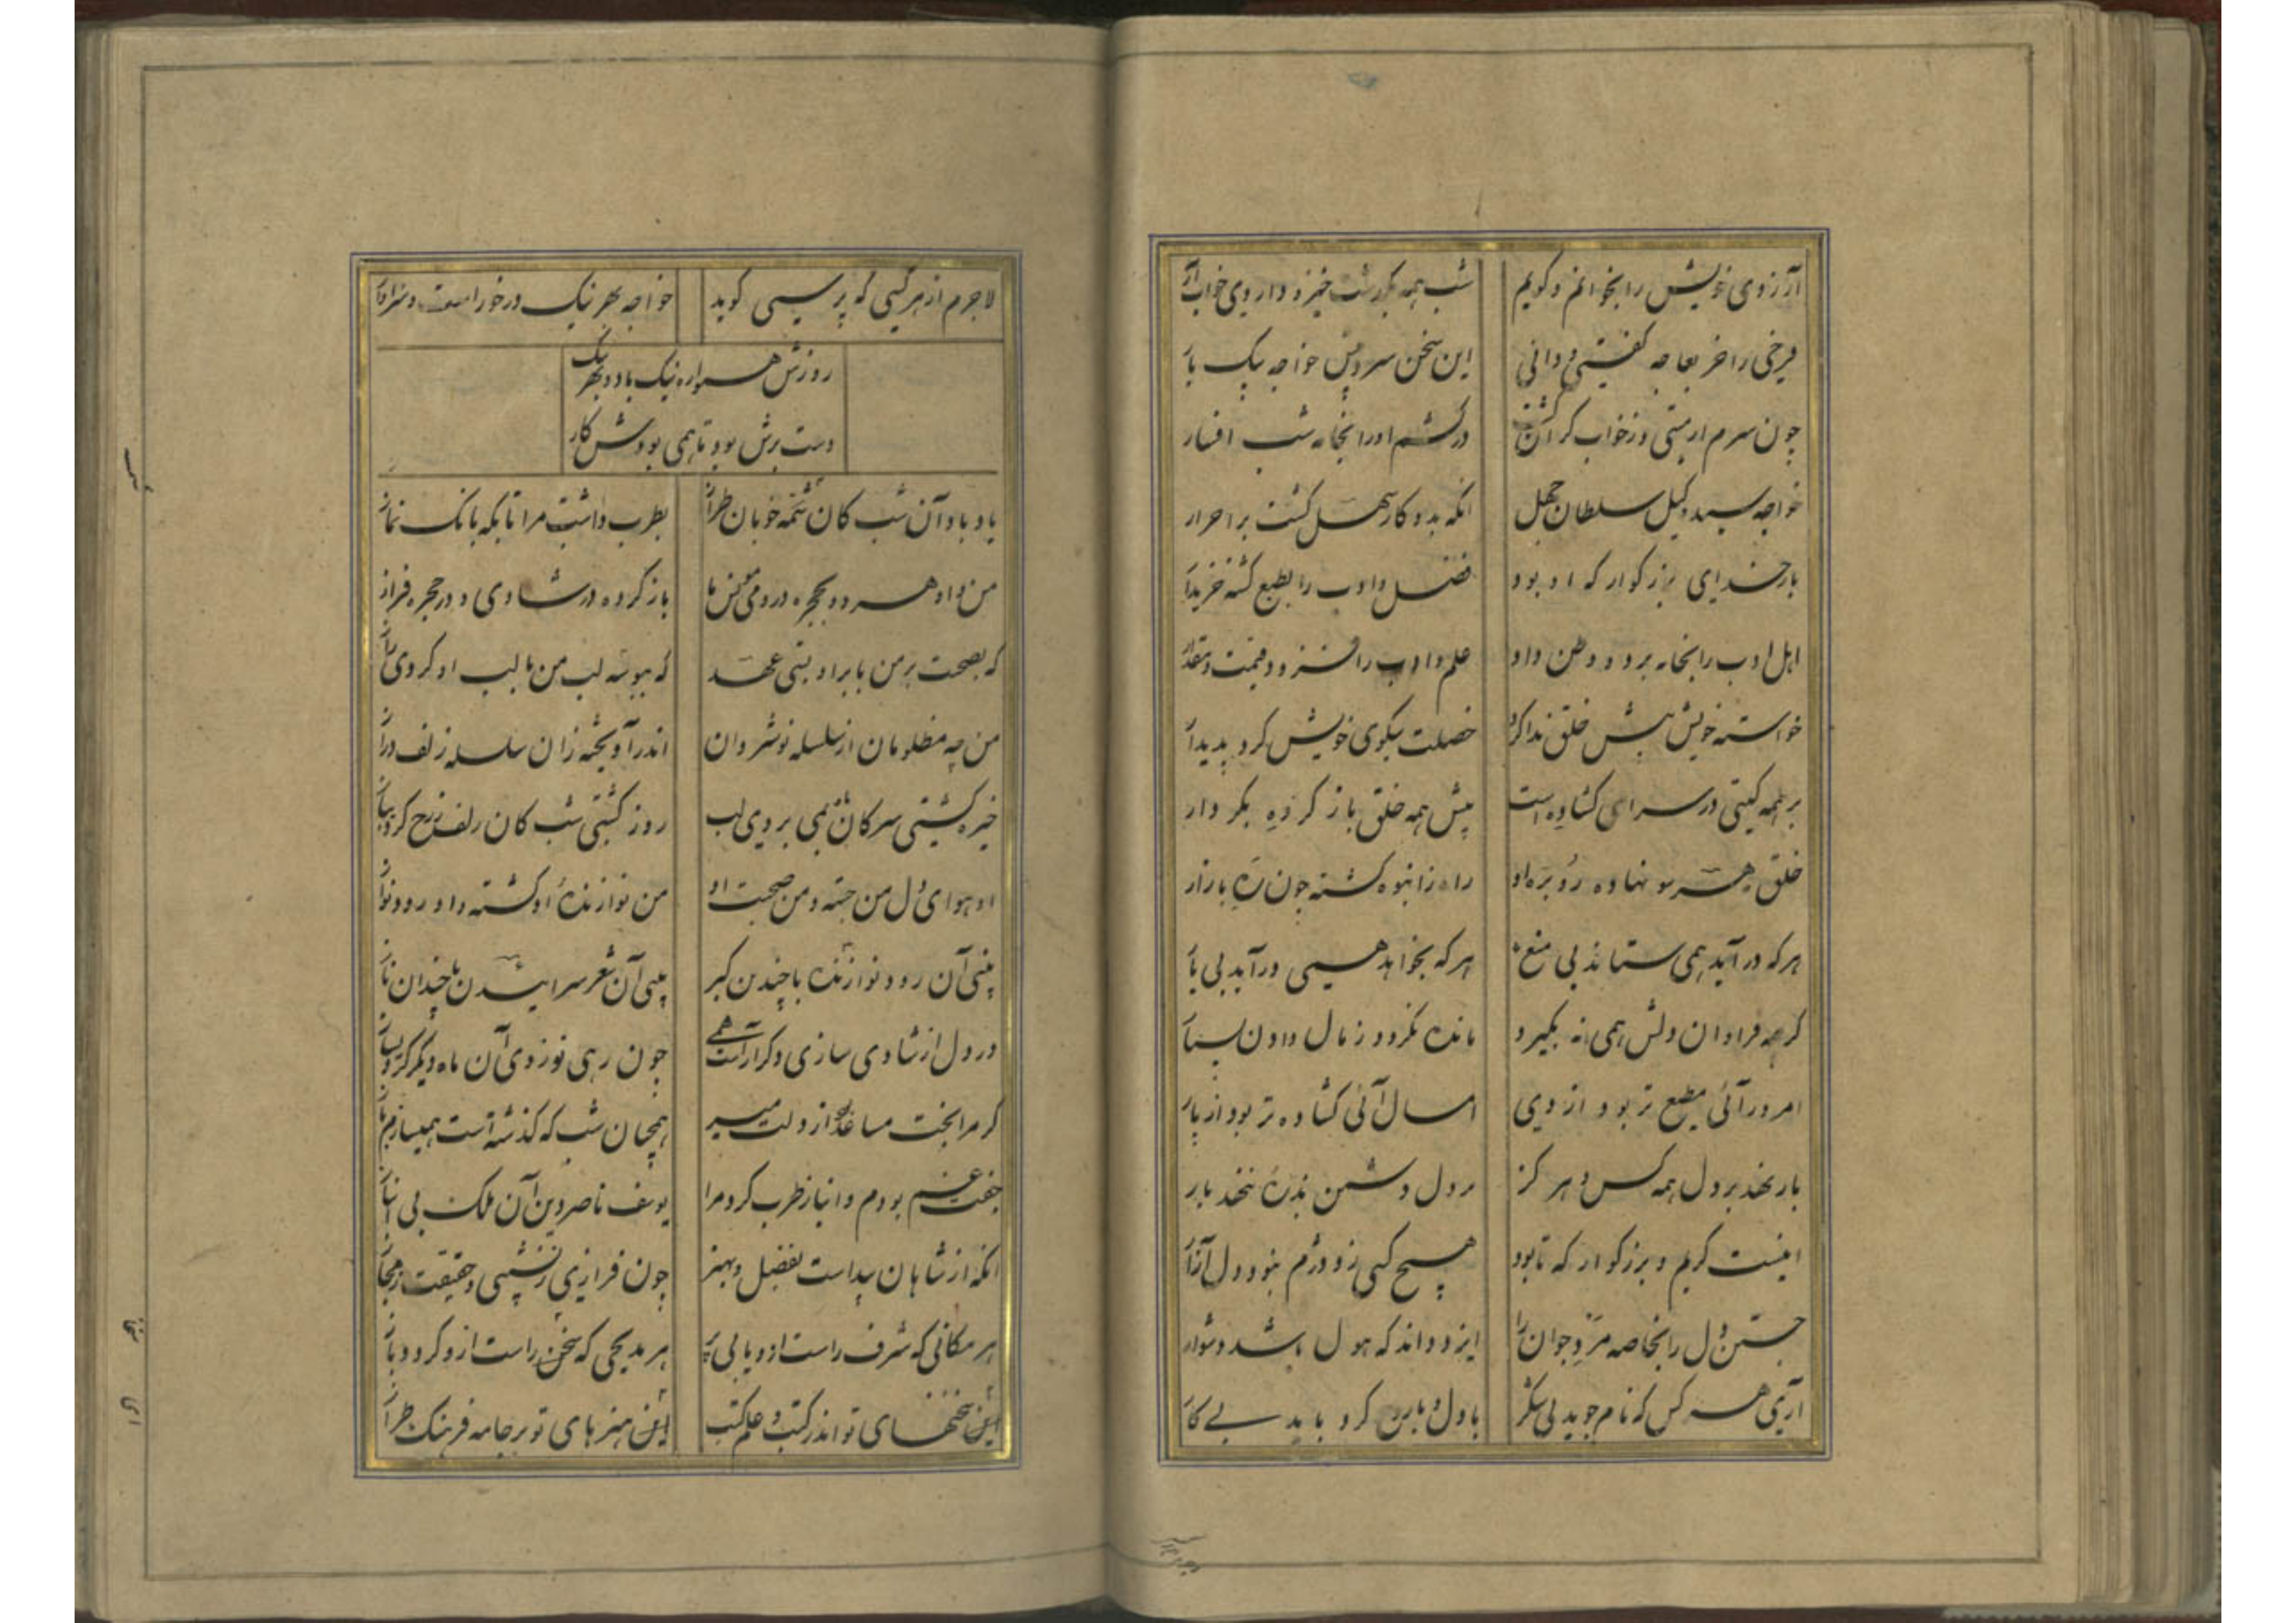 آرزوی خویش را بخوانم و گویم شب همه بگذشت خیز و داروی خواب آر
فرخی را خر بعاجه گفتی و دانی این سخن سر پیش خواجه پیک بار
چون سرم از مستی و ز خواب گران شد در کشم او را بخانه شب افسار
خواجه سید وکیل سلطان جهل انکه بدو کار سهل گشت بر احرار
بار خدای بزرگوار که او بود فضل و ادب را بطبع گشته خریدار
اهل ادب را بخانه برد و وطن داد علم و ادب را فزود قیمت و مقدار
خواسته خویش پیش خلق فدا کرد خصلت نیکوی خویش کرد پدیدار
بر همه گیتی در سرای گشاده است پیش همه خلق باز کرده بکردار
خلق ز هر سو نهاده رو بره او راه ز انبوه گشته چون ره بازار
هر که در آید همی ستاند بی منع هر که بخواهد همیسی درآید بی بار
گرچه فراوان دلش همی نه بگیرد مانده نگردد ز مال دادن بسیار
امروز آئی مطیع تر بود از دی امسال آئی گشاده تر بود از پار
بار نهد بر دل همه کس و هر گز بر دل دشمن بذره ننهد بار
اینست کریم و بزرگوار که تا بود هیچ کسی زو دژم نبود و دل آزار
جستن دل را بخاصه مرد جوان را ایزد داند که هول باشد و دشوار
آری هر کس که نام جوید بی شک با دل و با تن کرد باید بی کار
لاجرم از هر کسی که پرسی گوید خواجه بهر نیک در خور است و سزاوار
روزش همواره نیک باد و بهر نیک
دست برش بود تا همی بودش کار
یاد باد آن شب کان شمه خوبان طراز بطرب داشت مرا تا بکه بانک نماز
من و او هر دو بحجره در و می مونس ما باز کرده در شادی و در حجره فراز
که بصحبت بر من با بر او بستی عهد که ببوسه لب من با لب او کردی راز
من چه مظلومان از سلسله نوشروان اندر آویخته زان سلسله زلف دراز
خیره گشتی سر کان می بر وی لب روز گشتی شب کان زلف ز رخ کردی باز
او هوای دل من جسته و من صحبت او من نوازنده او گشته و او رود نواز
بینی آن رود نوازنده با چندین کبر بینی آن شعر سرائیدن با چندان ناز
در دل از شادی سازی دگر آراست همی چون رهی نو زدی آن ماه و دیگر کردی ساز
گر مرا بخت مساعد بود از دولت میر همچنان شب که گذشته است همیسازم باز
جفت غم بودم و انباز طرب کرد مرا یوسف ناصر دین آن ملک بی انباز
انکه از شاهان پیداست بفضل و بهنر چون فرازی ز نشیبی و حقیقت ز مجاز
هر مکانی که شرف راست ازو یابی پر هر مدیحی که سخن راست ازو گردد باز
این سخنهای تو اندر کتب و علم کتب این هنرهای تو بر جامه فرهنگ طراز